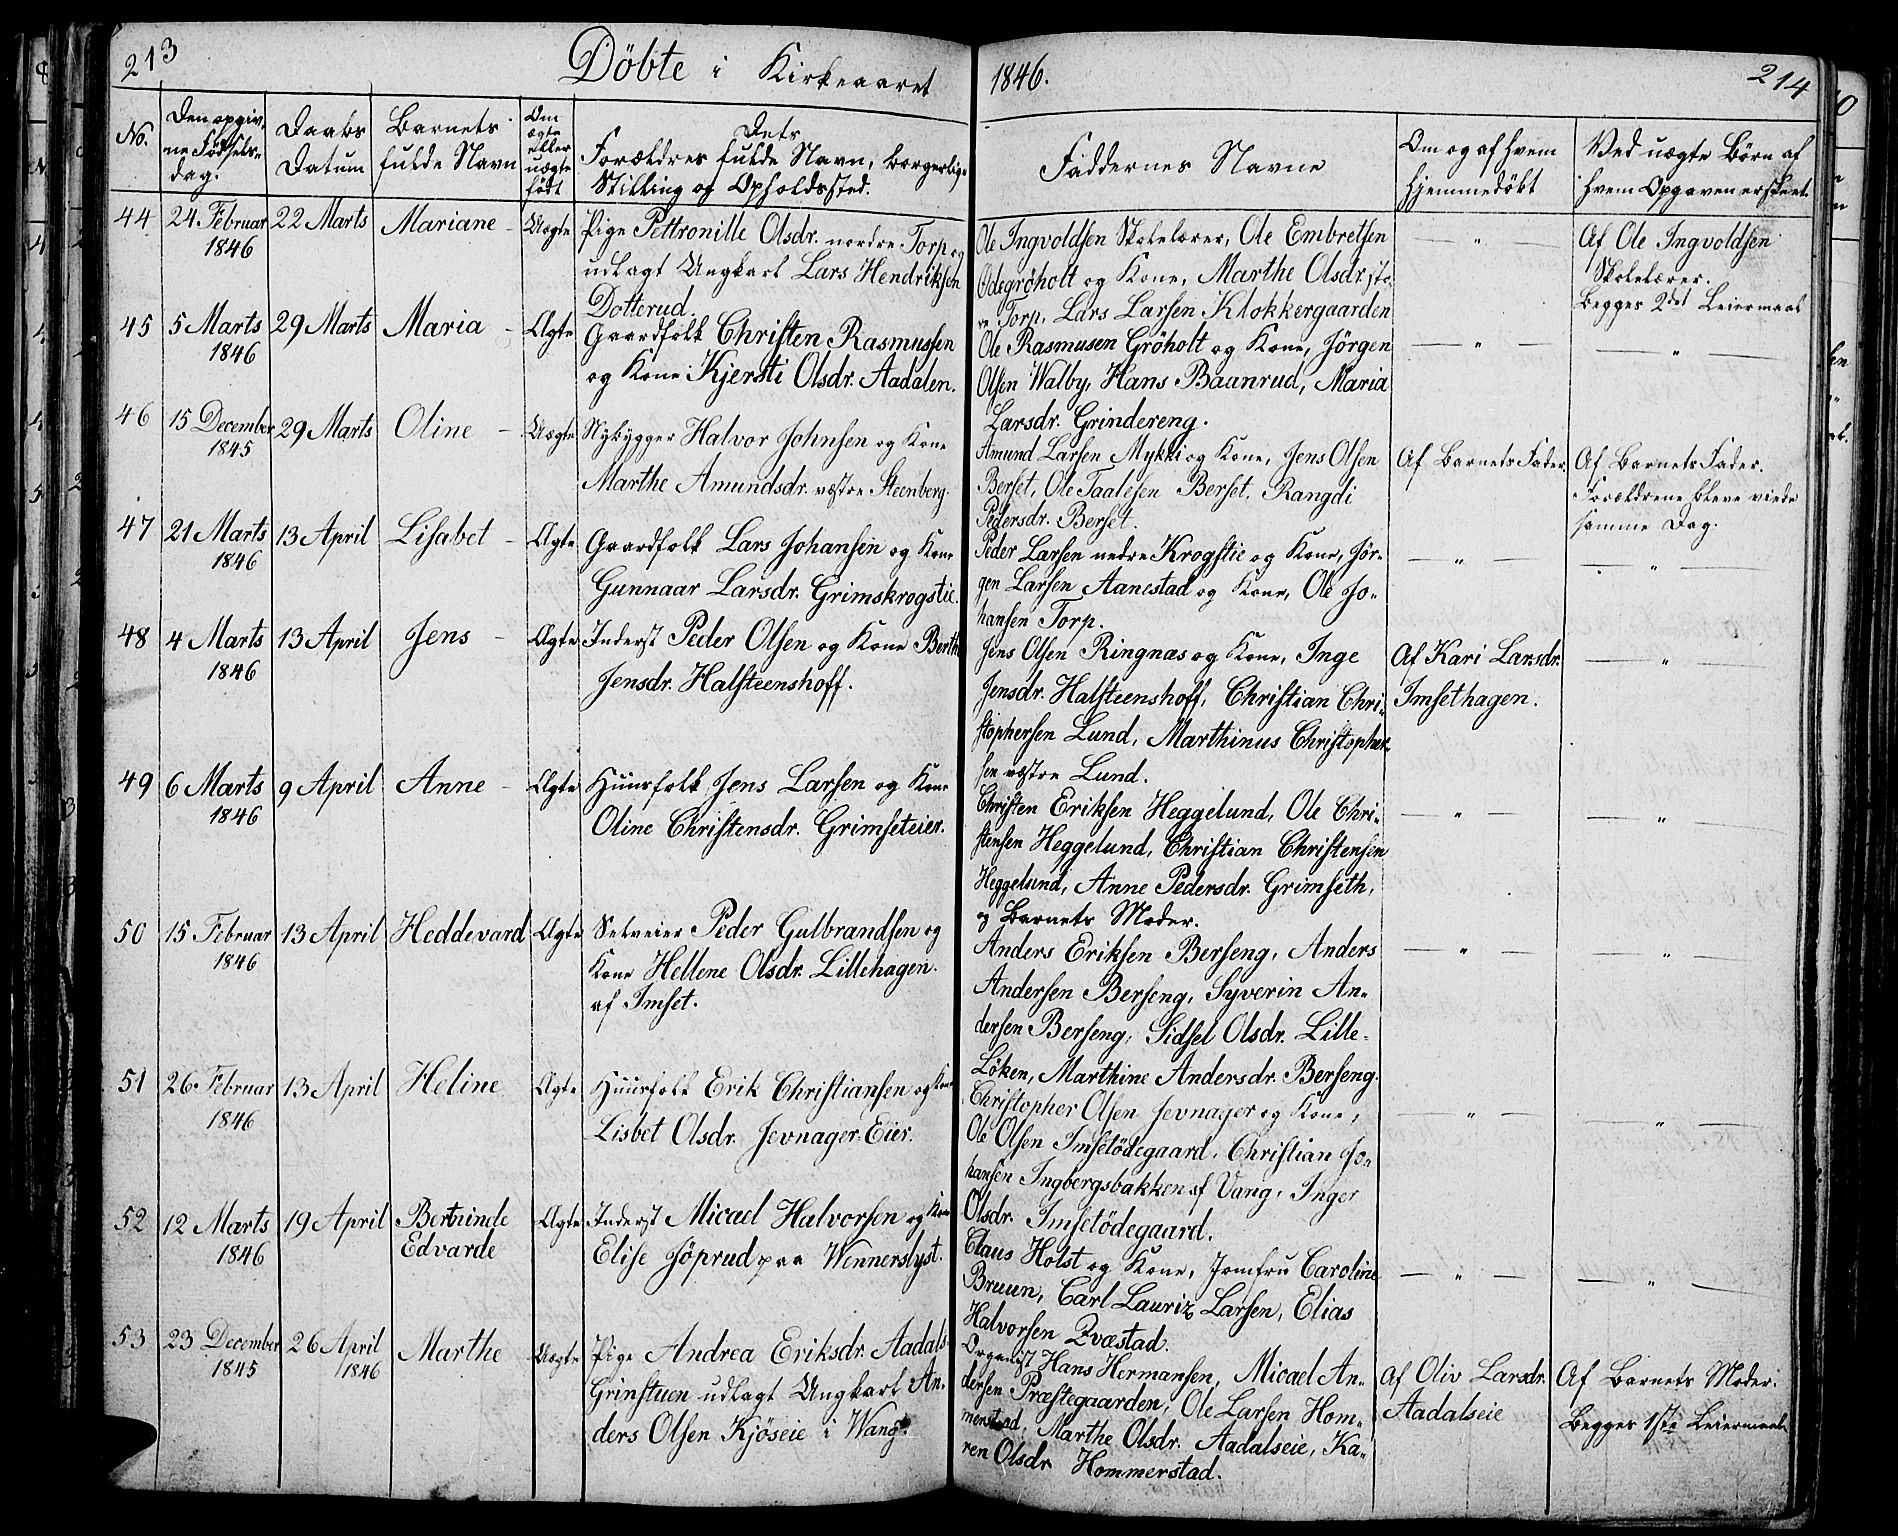 213
Döbte i Kirkeaaret
1846.
214
No.
Den opgiv-
ne Födsels-
dag.
Daabs
Datum
Barnets
fulde Navn
Om
ægte
eller
uægte
födt
Dets
Forældres fulde Navn, borgerlige
Stilling og Opholdssted.
Faddernes Navne
Om og af hvem
hjemmedöbt
Ved uægte Börn af
hvem Opgaven er skeet.
44 24 Februar 22 Marts Mariane - Uægte Pige Pettronille Olsdr. nordre Torp og
1846
udlagt Ungkarl Lars Hendriksen
Dotterud.
Ole Ingvoldsen Skolelærer, Ole Embretsen
Ödegröholt og Kone, Marthe Olsdr. stö-
re Torp, Lars Larsen Klokkergaarden
— " —
Af Ole Ingvoldsen
Skolelærer.
Begges 2det Leiermaal
45 5 Marts 29 Marts Maria - Ægte Gaardfolk Christen Rasmussen
1846
og Kone Kjersti Olsdr. Aadalen.
Ole Rasmusen Gröholt og Kone, Jörgen
Olsen Walby, Hans Baanrud, Maria
Larsdr. Grindereng.
— " —
— " —
46 15 December 29 Marts Oline - Uægte Nybygger Halvor Johnsen og Kone
1845
Marthe Amundsdr. vestre Steenberg.
Amund Larsen Mykki og Kone, Jens Olsen
Berset, Ole Taalesen Berset, Rangdi
Pedersdr. Berset.
Af Barnets Fader.
Af Barnets Fader.
Forældrene bleve viede
samme Dag.
47 21 Marts 13 April Lisabet - Ægte Gaardfolk Lars Johansen og Kone
1846
Gunnaar Larsdr. Grimskrogstie.
Peder Larsen nedre Krogstie og Kone, Jör-
gen Larsen Aanestad og Kone, Ole Jo-
hansen Torp.
— " —
— " —
48 4 Marts 13 April Jens - Ægte Inderst Peder Olsen og Kone Berthe
1846
Jensdr. Halsteenshoff.
Jens Olsen Ringnæs og Kone, Inge
Jensdr. Halsteenshoff, Christian Chri-
stophersen Lund, Marthinus Christopher-
sen vestre Lund.
Af Kari Larsdr.
Imsethagen.
— " —
49 6 Marts 9 April Anne - Ægte Huusfolk Jens Larsen og Kone
1846
Oline Christensdr. Grimseteier.
Christen Eriksen Heggelund, Ole Chri-
stensen Heggelund, Christian Christensen
Heggelund, Anne Pedersdr. Grimseth,
og Barnets Moder.
— " —
— " —
50 15 Februar 13 April Heddevard Ægte Selveier Peder Gulbrandsen og
1846
Kone Hellene Olsdr. Lillehagen.
af Imset.
Anders Eriksen Berseng, Anders
Andersen Berseng, Syverin An-
dersen Berseng, Sidsel Olsdr. Lille-
Löken, Marthine Andersdr. Berseng.
— " —
— " —
51 26. Februar 13 April Heline Ægte Huusfolk Erik Christiansen og Kone
1846
Lisbet Olsdr. Jevnager. Eier.
Christopher Olsen Jevnager og Kone,
Ole Olsen Imsetödegaard, Christian Jo-
hansen Ingbergsbakken af Vang, Inger
Olsdr. Imsetödegaard.
— " —
— " —
52 12 Marts 19 April Bertrinde Ægte Inderst Micael Halvorsen og Kone
1846
Edvarde
Elise Jöprud paa Wennerslyst.
Claus Holst og Kone, Jomfru Caroline
Bruun, Carl Lauriz Larsen, Elias
Halvorsen Qvæstad.
— " —
— " —
53 23 December 26 April Marthe Uægte Pige Andrea Eriksdr. Aadals-
1845 1846
Grinstuen udlagt Ungkarl An-
ders Olsen Kjöseie i Wang.
Organist Hans Hermansen, Micael An-
dersen Præstegaarden, Ole Larsen Hom-
merstad, Marthe Olsdr. Aadalseie, Ka-
ren Olsdr Hommerstad.
Af Oliv Larsdr.
Aadalseie
Af Barnets Moder.
Begges 1ste Leiermaal